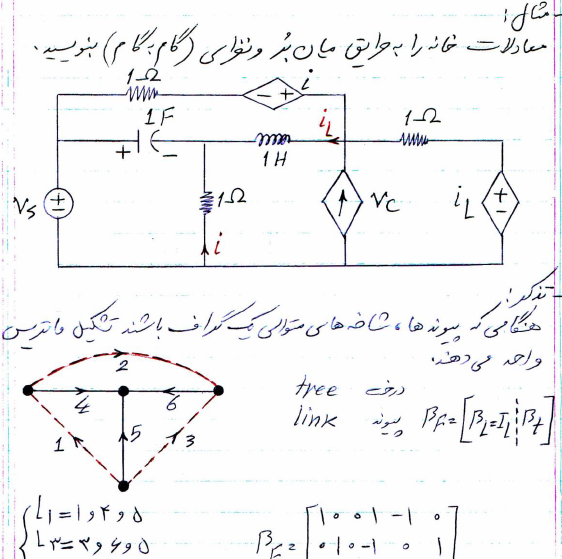 مثال:
معادلات خانه را به طریق میان بُر و نظری (گام به گام) بنویسید.
1Ω
− + i
1F
+ −
1H
i_L
1Ω
v_s
1Ω
i
v_C
i_L
تذکر:
هنگامی که پیوندها، شاخه های متوالی یک گراف باشند تشکیل ماتریس
واحد می دهند.
2
4 6
1 5 3
tree درخت
link پیوند
B_F = [B_L = I_L ¦ B_t]
L1 = 1 و 4 و 5
L3 = 3 و 6 و 5
B_F =
1 0 0 1 -1 0
0 1 0 -1 0 1